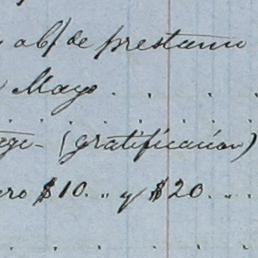 ob/ de prestamo
Mayo . . .
(gratificación)
$10.. y $20 ...